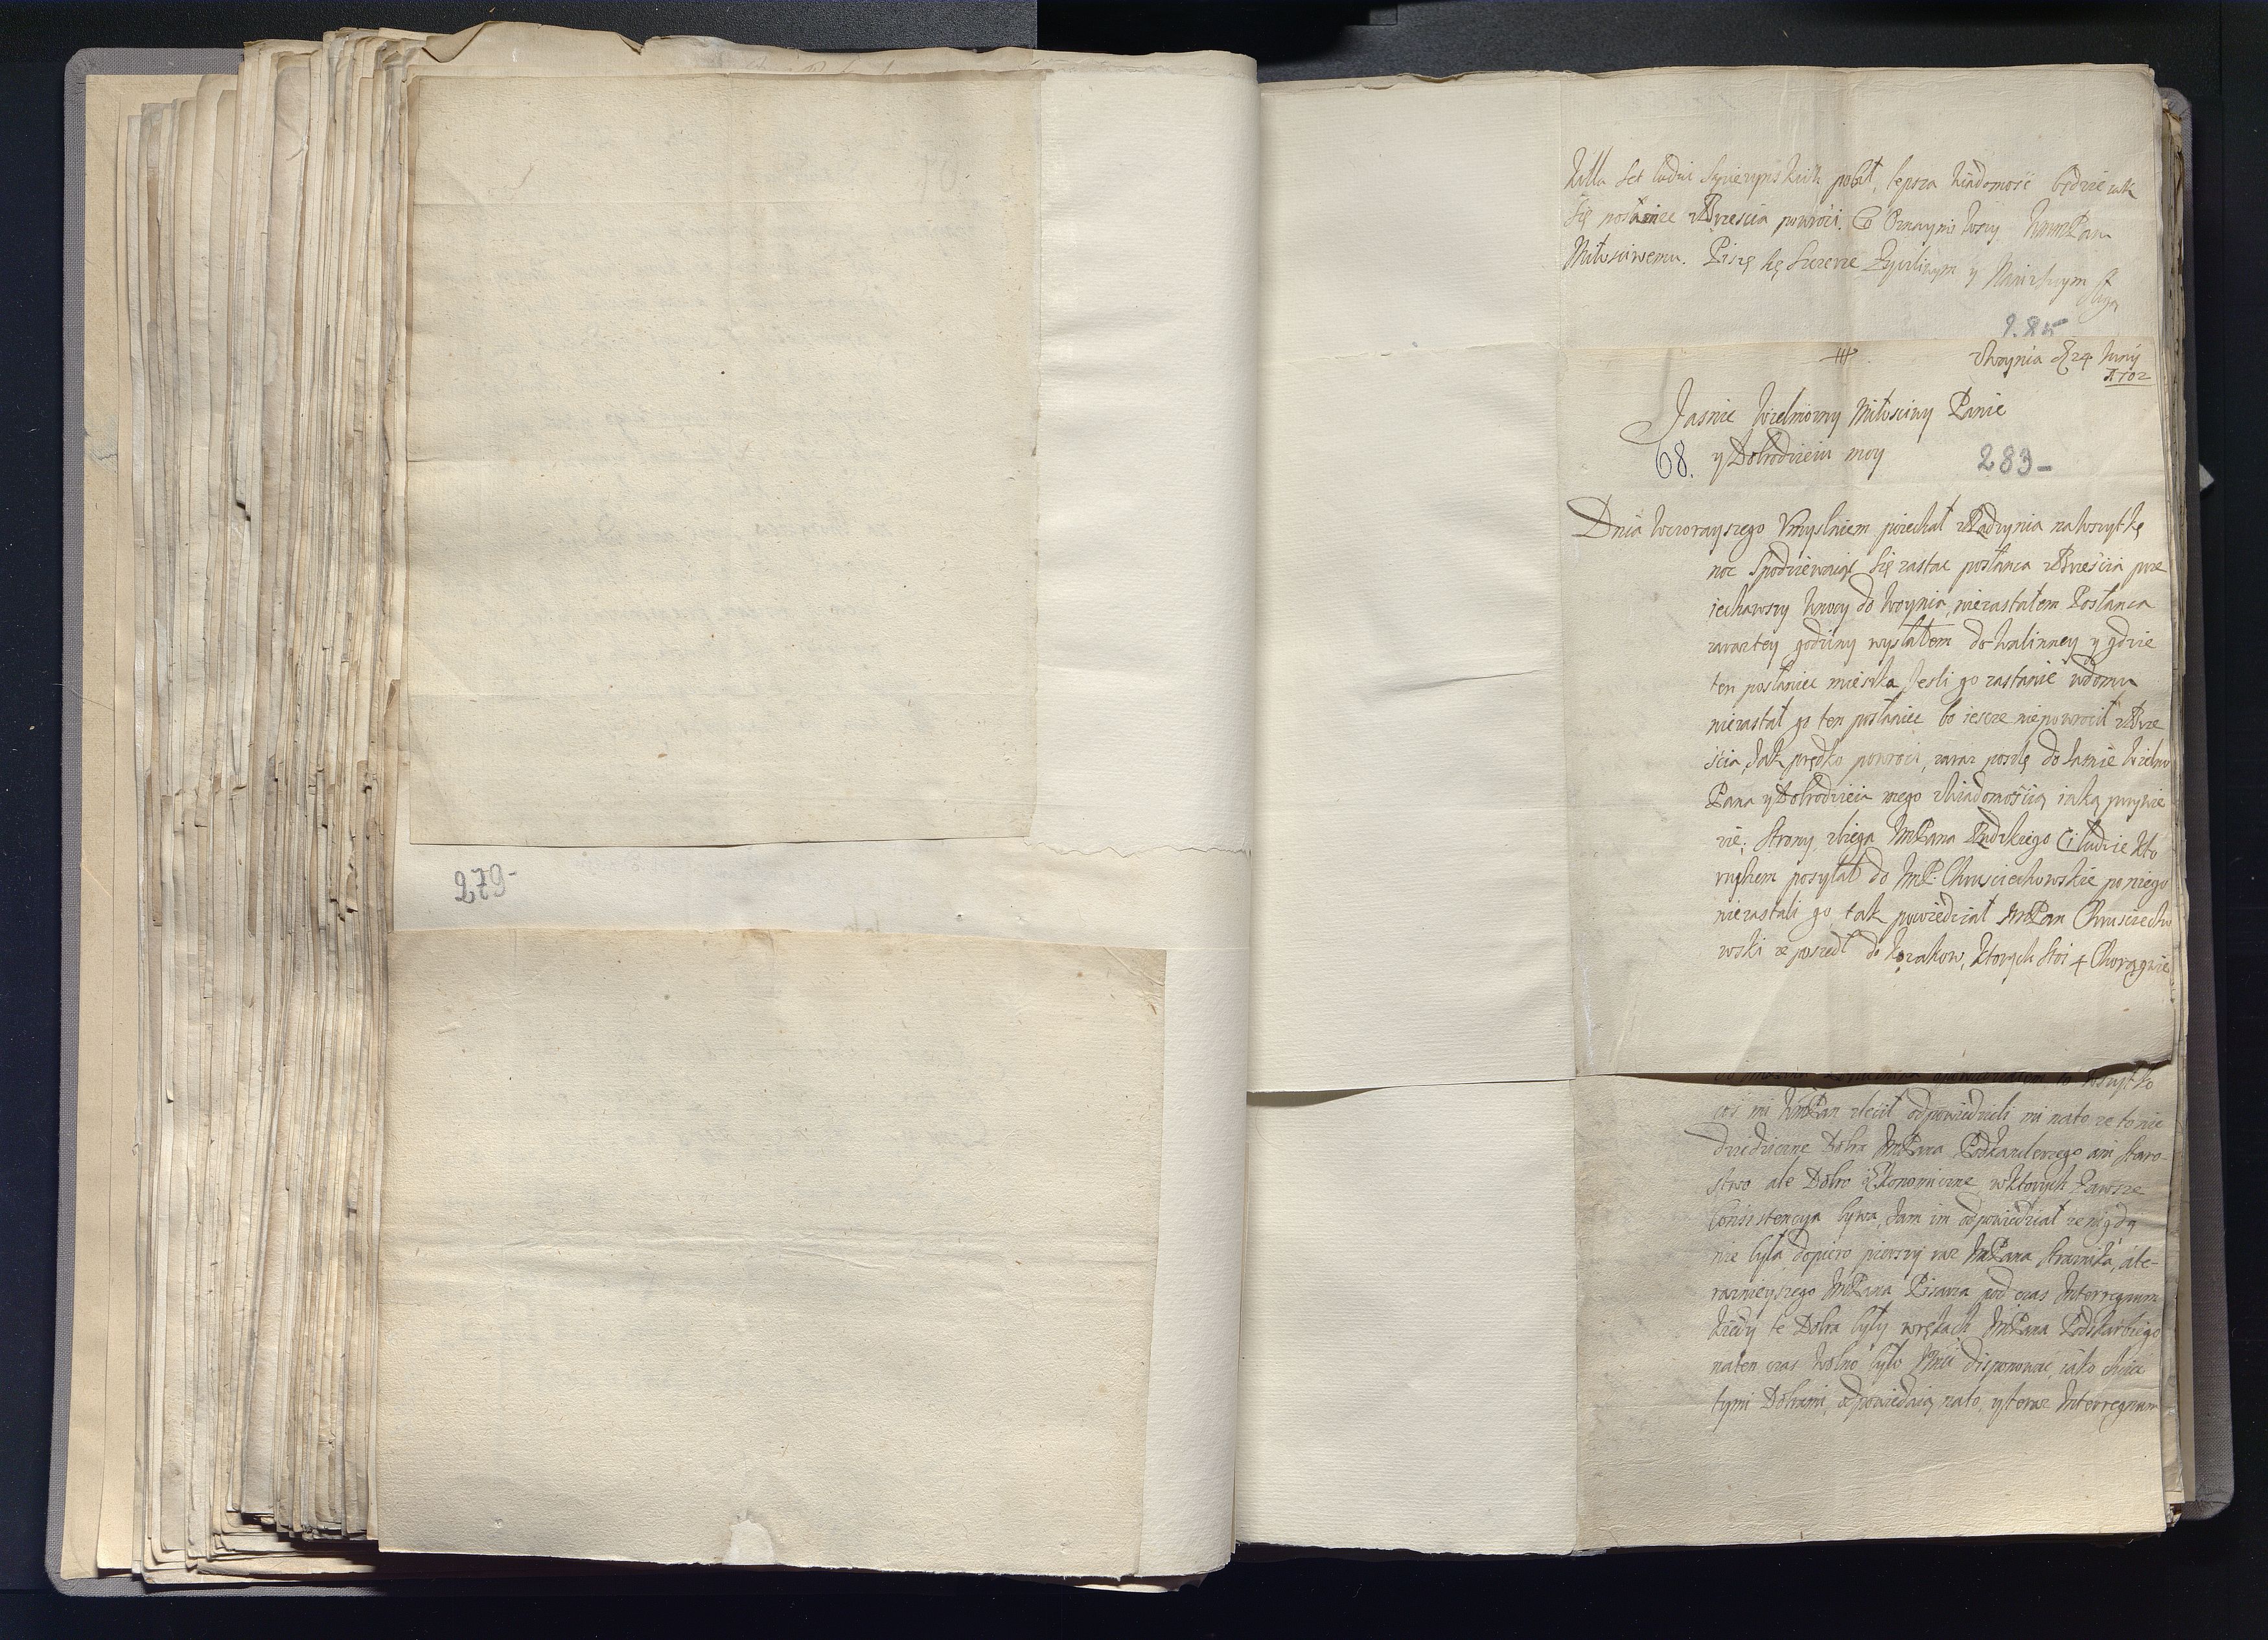 279-
Killa Set ludzi Szwedzkich pobit, lepsza wiadomość będzie iak
Się posłaniec zBrzescia powroci. Co Oznaymiwszy WMMPanu
Miłosciwemu. Piszę Się Szczerze Zyczliwym y Nanizszym Sługą
285
zWoynia d 24 Juny
1702
Jasnie Wielmozny Miłosciwy Panie
68. y Dobrodzieiu moy
283-
Dnia wczorayszego Umyslniem prziechał zRadzynia na wszytkę
noc Spodziewaiąc Się zastac posłanca zBrzescia prze
iechawszy wnocy do Woynia, niezastałem Posłanca
zaraz tey godziny wysłałem do Walinney y gdzie
ten posłaniec mieszka, Jesli go zastanie wdomu
niezastał go ten posłaniec bo iescze niepowrocił zBrze
scia, Jak prędko powroci, zaraz poszlę do Jasnie Wielmo
Pana y Dobrodzieia mego zWiadomoscią iaką przynie
sie; Strony zbiega JmPana Rudzkiego Ci ludzie kto
rychem posyłał do JmP. Chrusciechowskie po niego
niezastali go tak powiedział JmPan Chrusciecho
wski ze poszedł do Kozakow, ktorych Stoi 4 Chorągwie
to wszytko
coś mi WMPan zlecił odpowiedzieli mi nato ze to nie
dziedziczne Dobra JmPana Podkanclerzego ani Staro-
stwo ale Dobro Ekonomiczne wktorych Zawsze
Consistencya bywa, Jam im odpowiedział ze nigdy
nie była, dopiero pierwszy raz JmPana Straznika, ate-
raznieyszego JmPana Pisarza pod czas Interregnum
kiedy te Dobra były wrękach JmPana Podskarbiego
naten czas Wolno było Jmści disponowac, iako chciec
tymi Dobrami, odpowiedaią nato, y teraz Interregnum